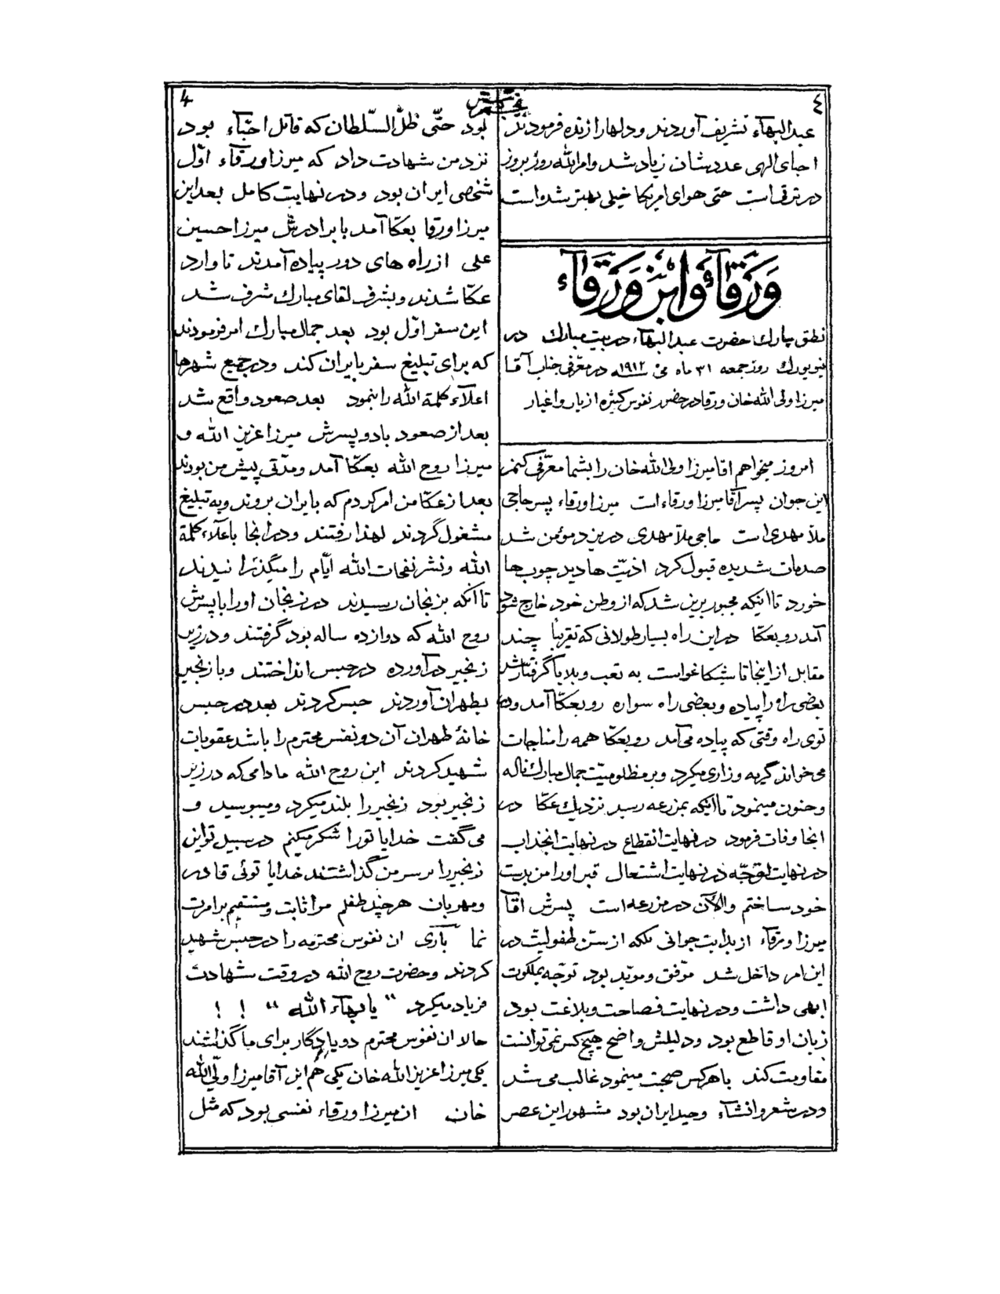 ٤
نجم باختر
4
عبدالبهآء تشریف آوردند و دلها را زنده فرمودند
احبای الهی عددشان زیاد شد و امرالله روز بروز
در ترقی است حتی هوای امریکا خیلی بهتر شده است
وَرَقآء وَابن وَرَقآء
نطق مبارک حضرت عبدالبهآء در بیت مبارک در
نیویورک روز جمعه ۳۱ ماه می ۱۹۱۲ در معرّفی جناب آقا
میرزا ولی الله خان ورقا در حضور نفوس کثیره از یار و اغیار
امروز میخواهم اقا میرزا ولی الله خان را بشما معرّفی کنم
این جوان پسر آقا میرزا ورقاء است میرزا ورقاء پسر حاجی
ملّا مهدی است حاجی ملّا مهدی در یزد مؤمن شد
صدمات شدیده قبول کرد اذیّت ها دید چوب ها
خورد تا اینکه مجبور برین شد که از وطن خود خارج شود
آمد رو بعکا در این راه بسیار طولانی که تقریباً چند
مقابل از اینجا تا شیکاغو است به تعب و بلایا گرفتار شد
بعضی راه را پیاده و بعضی راه سواره رو بعکّا آمد و در
توی راه وقتی که پیاده می آمد رو بعکّا همه را مناجات
می خواند گریه و زاری میکرد و بر مظلومیّت جمال مبارک ناله
و حنین مینمود تا اینکه بمزرعه رسید نزدیک عکّا در
انجا وفات فرمود در نهایت انقطاع در نهایت انجذاب
در نهایت توجّه در نهایت اشتعال قبر او را من بدست
خود ساختم و الآن در مزرعه است پسرش اقا
میرزا ورقاء از بدایت جوانی بلکه از سنّ طفولیّت در
این امر داخل شد موفّق و مویّد بود توجّه بملکوت
ابهی داشت و در نهایت فصاحت و بلاغت بود
زبان او قاطع بود و دلیلش واضح هیچ کس نمی توانست
مقاومت کند با هر کس صحبت مینمود غالب می شد
و در شعر و انشاء وحید ایران بود مشهور این عصر
بود حتّی ظلّ السّلطان که قاتل احبّاء بود
نزد من شهادت داد که میرزا ورقاء اوّل
شخصی ایران بود و در نهایت کامل بعد این
میرزا ورقا بعکّا آمد با برادرش میرزا حسین
علی از راه های دور پیاده آمدند تا وارد
عکّا شدند و بشرف لقای مبارک مشرف شد
این سفر اوّل بود بعد جمال مبارک امر فرمودند
که برای تبلیغ سفر بایران کند و در جمیع شهرها
اعلاء کلمة الله را بنمود بعد صعود واقع شد
بعد از صعود با دو پسرش میرزا عزیز الله و
میرزا روح الله بعکّا آمد و مدّتی پیش من بودند
بعد از عکّا من امر کردم که بایران بروند و به تبلیغ
مشغول گردند لهذا رفتند و در انجا باعلاء کلمة
الله و نشر نفحات الله ایّام را میگذرانیدند
تا آنکه بزنجان رسیدند در زنجان او را با پسرش
روح الله که دوازده ساله بود گرفتند و در زیر
زنجیر در آورده در حبس انداختند و با زنجیر
بطهران آوردند حبس کردند بعد در حبس
خانۀ طهران آن دو نفس محترم را باشد عقوبات
شهید کردند این روح الله مادامی که در زیر
زنجیر بود زنجیر را بلند میکرد و میبوسید و
می گفت خدایا تو را شکر میکنم در سبیل تو این
زنجیر را بر سر من گذاشتند خدایا توئی قادر
و مهربان هر چند طفلم مرا ثابت و مستقیم بر امرت
نما باری ان نفوس محترمه را در حبس شهید
کردند و حضرت روح الله در وقت شهادت
فریاد میکرد "یا بهآء الله" ! !
حالا ان نفوس محترم دو یادگار برای ما گذاشتند
یکی میرزا عزیز الله خان یکی هم این آقا میرزا ولی الله
خان ان میرزا ورقاء نفسی بود که مثل